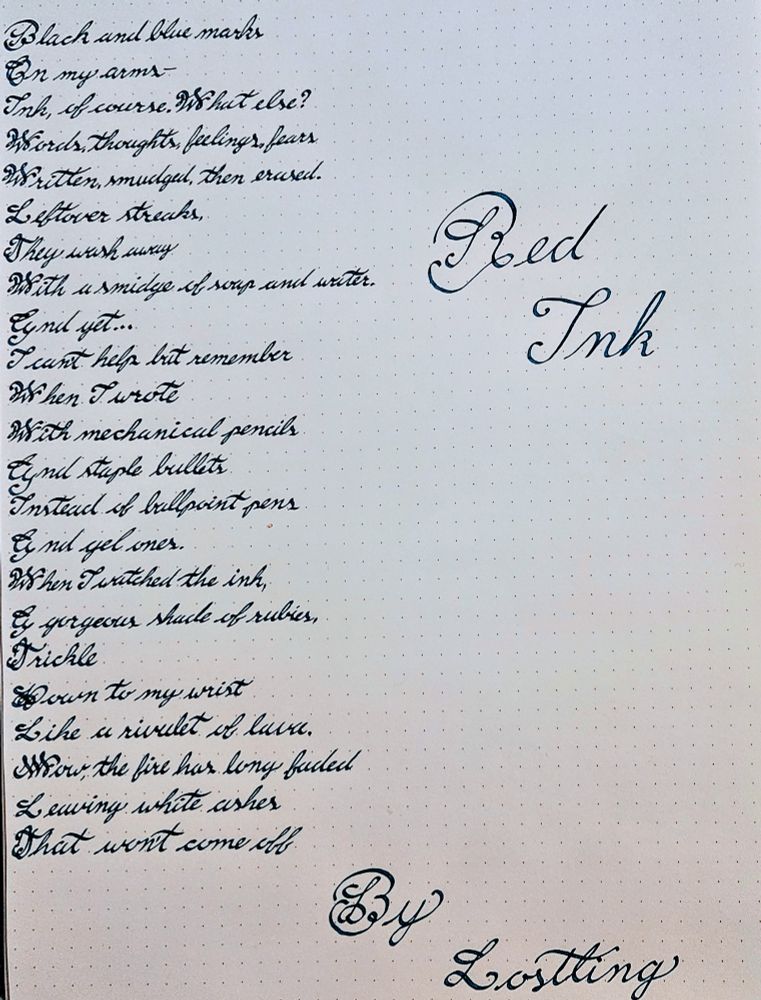 Black and blue marks
On my arms—
Ink, of course. What else?
Words, thoughts, feelings, fears
Written, smudged, then erased.
Leftover streaks,
They wash away
With a smidge of soap and water.
And yet...
I can't help but remember
When I wrote
With mechanical pencils
And staple bullets
Instead of ballpoint pens
And gel ones.
When I watched the ink,
A gorgeous shade of rubies,
Trickle
Down to my wrist
Like a rivulet of lava.
Now, the fire has long faded
Leaving white ashes
That won't come off
Red
Ink
By
Lostling